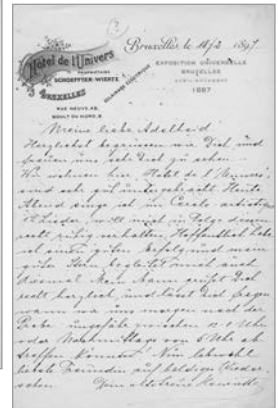 (2)
Bruxelles le 18/2 1897
Hôtel de l'Univers
PROPRIÉTAIRE
SCHOEFFTER-WIERTZ
BRUXELLES
ÉCLAIRAGE ÉLECTRIQUE
EXPOSITION UNIVERSELLE
BRUXELLES
1897
RUE NEUVE
BOULT DU NORD, 2
Meine liebe Adelheid!
Herzlichst begrüssen wir Dich und
freuen uns sehr Dich zu sehen.
Wir wohnen hier, Hôtel de l'Univers,
sind sehr gut untergebracht. Heute
Abend singe ich im Cercle artistique
Lieder, will mich in Folge dessen
recht ruhig verhalten. Hoffentlich habe
ich einen guten Erfolg und mein
guter Stern begleitet mich auch
diesmal. Mein Mann grüßt Dich
recht herzlich und lässt Dich fragen
wann wir uns morgen nach der
Probe ungefähr zwischen 12-1 Uhr
oder Nachmittags von 5 Uhr ab
treffen können? Nun lebewohl
liebste Freundin auf baldiges Wieder-
sehen. Dein alte treue Henriette